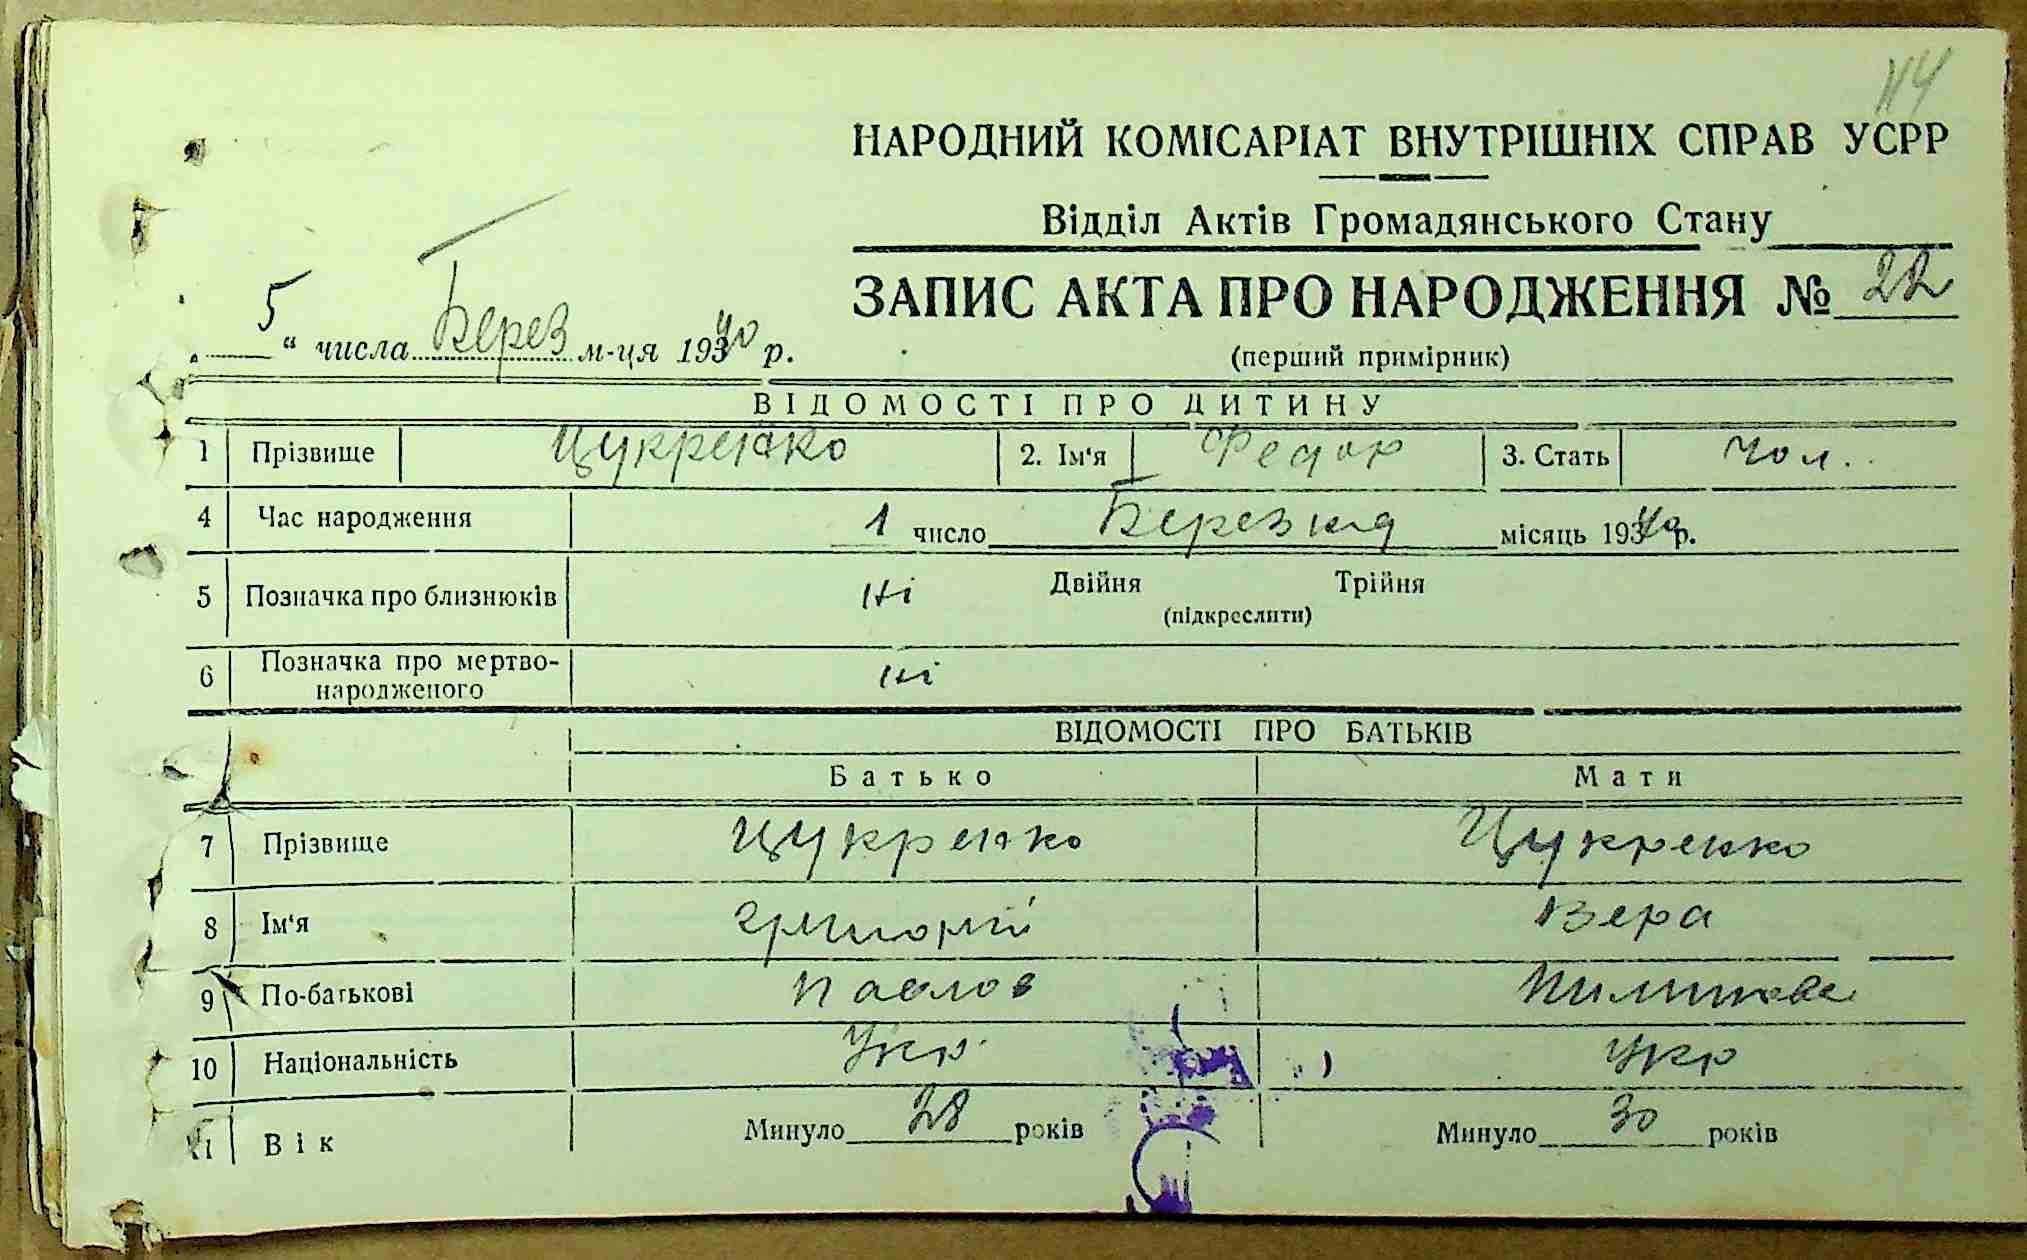 114
НАРОДНИЙ КОМІСАРІАТ ВНУТРІШНІХ СПРАВ УСРР
Відділ Актів Громадянського Стану
ЗАПИС АКТА ПРО НАРОДЖЕННЯ № 22
„5“ числа Берез м-ця 1940 р.
(перший примірник)
ВІДОМОСТІ ПРО ДИТИНУ
1 Прізвище Цукренко 2. Ім‘я Федор 3. Стать Чол.
4 Час народження 1 число Березня місяць 1940 р.
5 Позначка про близнюків Ні Двійня Трійня
(підкреслити)
6 Позначка про мертво-
народженого Ні
ВІДОМОСТІ ПРО БАТЬКІВ
Батько Мати
7 Прізвище Цукренко Цукренко
8 Ім‘я Григорій Вера
9 По-батькові Павлов
10 Національність Укр. Укр
11 Вік Минуло 28 років Минуло 30 років